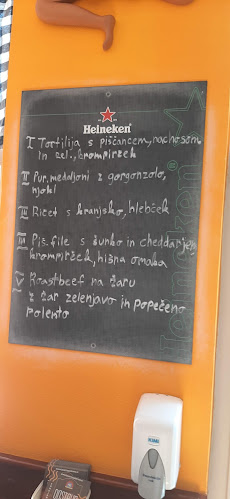 Heineken
I Tortilija s piščancem, nachosom
in zel., krompirček
II Pur. medaljoni z gorgonzolo,
njoki
III Ričet s kranjsko, hlebček
IIII Piš. file s šunko in cheddarjem,
krompirček, hišna omaka
V Roastbeef na žaru
z žar zelenjavo in popečeno
polento
Heineken